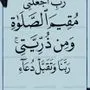 رَبِّ اجْعَلْنِي
مُقِيمَ الصَّلَوٰةِ
وَمِن ذُرِّيَّتِي ۚ
رَبَّنَا وَتَقَبَّلْ دُعَاءِ